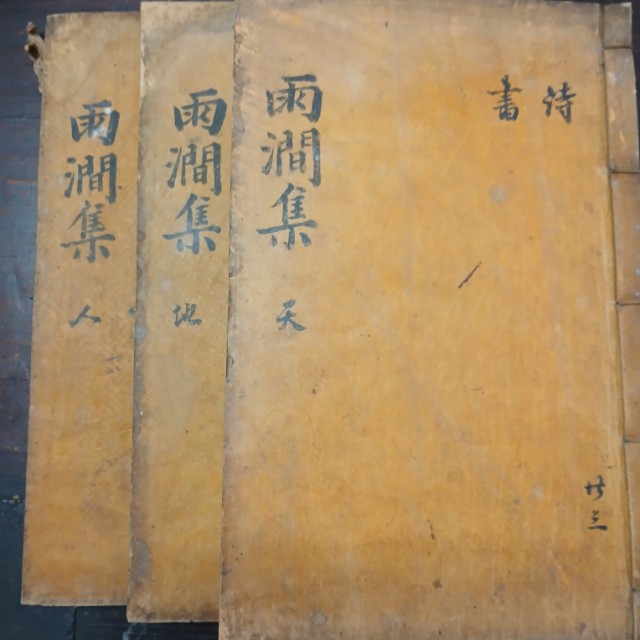 詩
書
共三
雨澗集 天
雨澗集 地
雨澗集 人